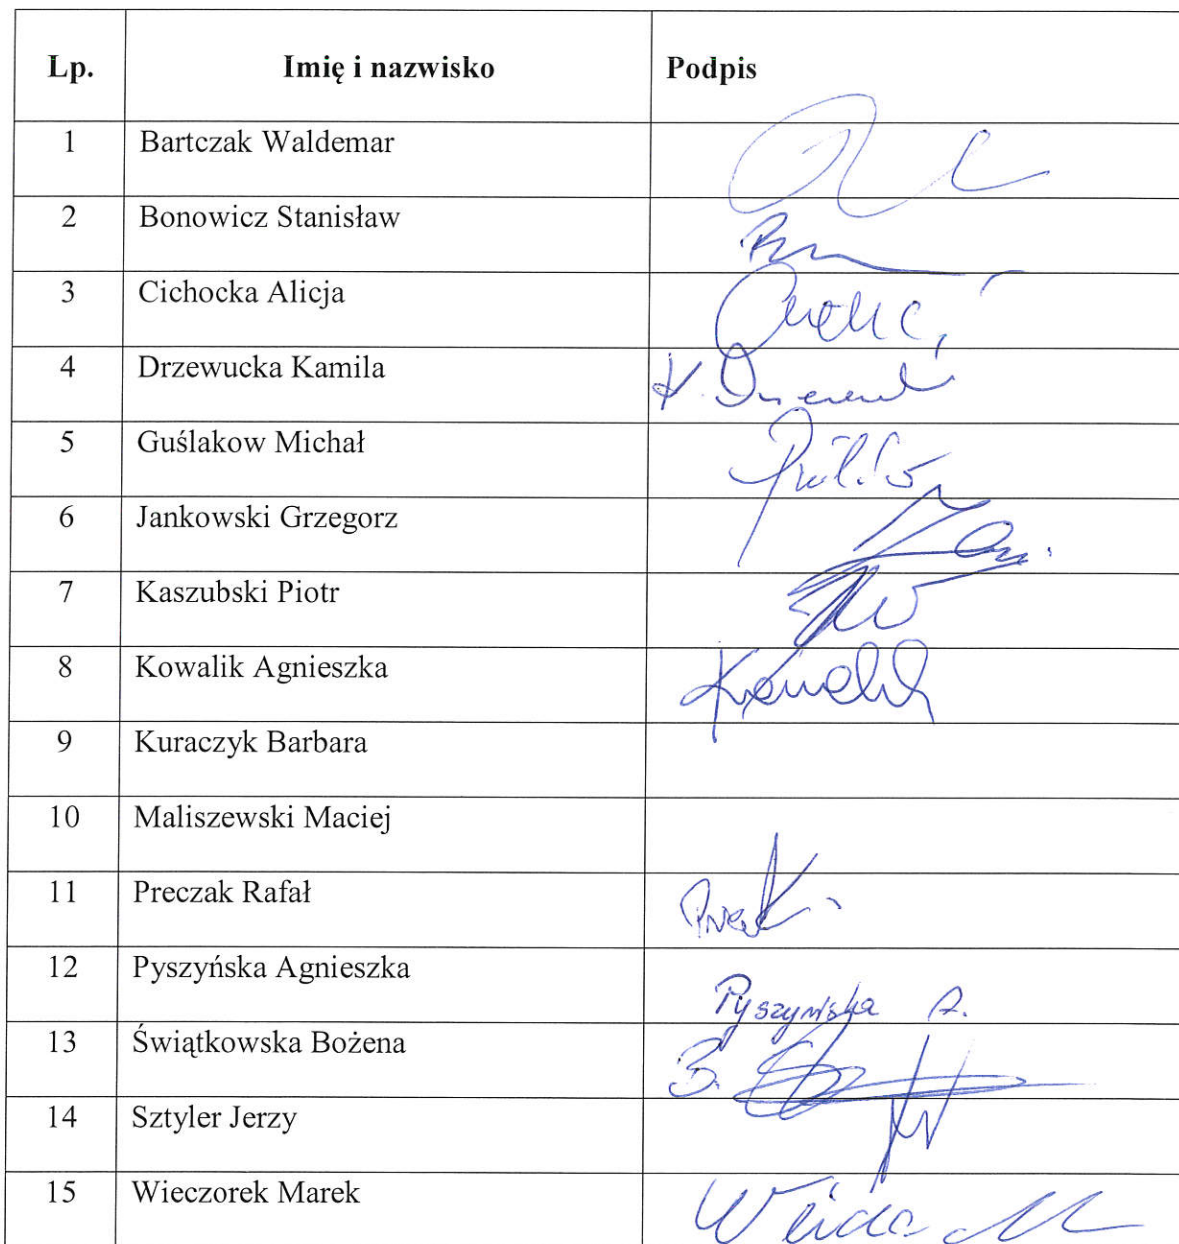 Lp. Imię i nazwisko Podpis
1 Bartczak Waldemar
2 Bonowicz Stanisław
3 Cichocka Alicja
4 Drzewucka Kamila K.
5 Guślakow Michał
6 Jankowski Grzegorz
7 Kaszubski Piotr
8 Kowalik Agnieszka Kowalik
9 Kuraczyk Barbara
10 Maliszewski Maciej
11 Preczak Rafał
12 Pyszyńska Agnieszka Pyszyńska A.
13 Świątkowska Bożena B.
14 Sztyler Jerzy
15 Wieczorek Marek